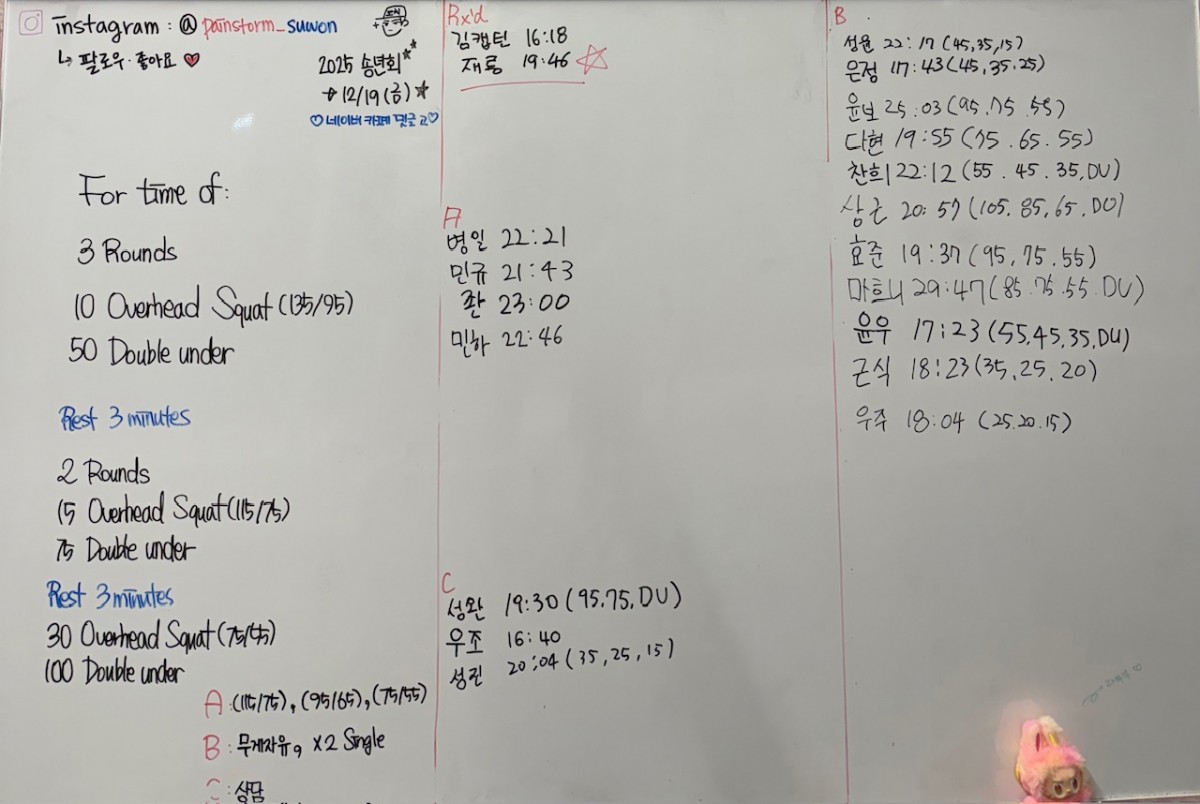 instagram : @ painstorm_suwon
↳ 팔로우·좋아요 ♥
2025 송년회
→ 12/19 (금)
♡네이버 카페 댓글 고♡
For time of:
3 Rounds
10 Overhead Squat (135/95)
50 Double under
Rest 3 minutes
2 Rounds
15 Overhead Squat (115/75)
75 Double under
Rest 3 minutes
30 Overhead Squat (75/55)
100 Double under
A : (115/75), (95/65), (75/55)
B : 무게자유, X2 Single
C : 상담
Rx'd
김캡틴 16:18
재룡 19:46 ☆
A
병일 22:21
민규 21:43
쫜 23:00
민하 22:46
C
성완 19:30 (95.75, DU)
우조 16:40
성진 20:04 (35, 25, 15)
B
성윤 22:17 (45,35,15)
은정 17:43 (45,35.25)
윤보 25:03 (95.75.55)
다현 19:55 (75.65.55)
찬희 22:12 (55.45.35, DU)
상근 20:57 (105.85,65.DU)
효준 19:37 (95,75.55)
29:47 (85.75.55.DU)
윤우 17:23 (55,45,35,DU)
근식 18:23 (35,25,20)
우주 18:04 (25.20.15)